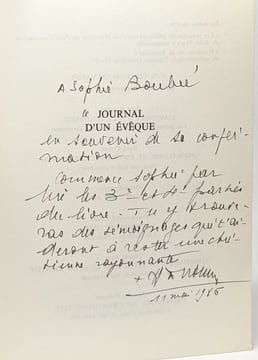 A Sophie
ce
JOURNAL
D'UN ÉVÊQUE
en souvenir de sa confir-
mation
Commence Sophie par
lire les 3e et 5e parties
du livre. Tu y trouve-
ras des témoignages qui t'ai-
deront à rester une chré-
tienne rayonnante
11 mai 1986